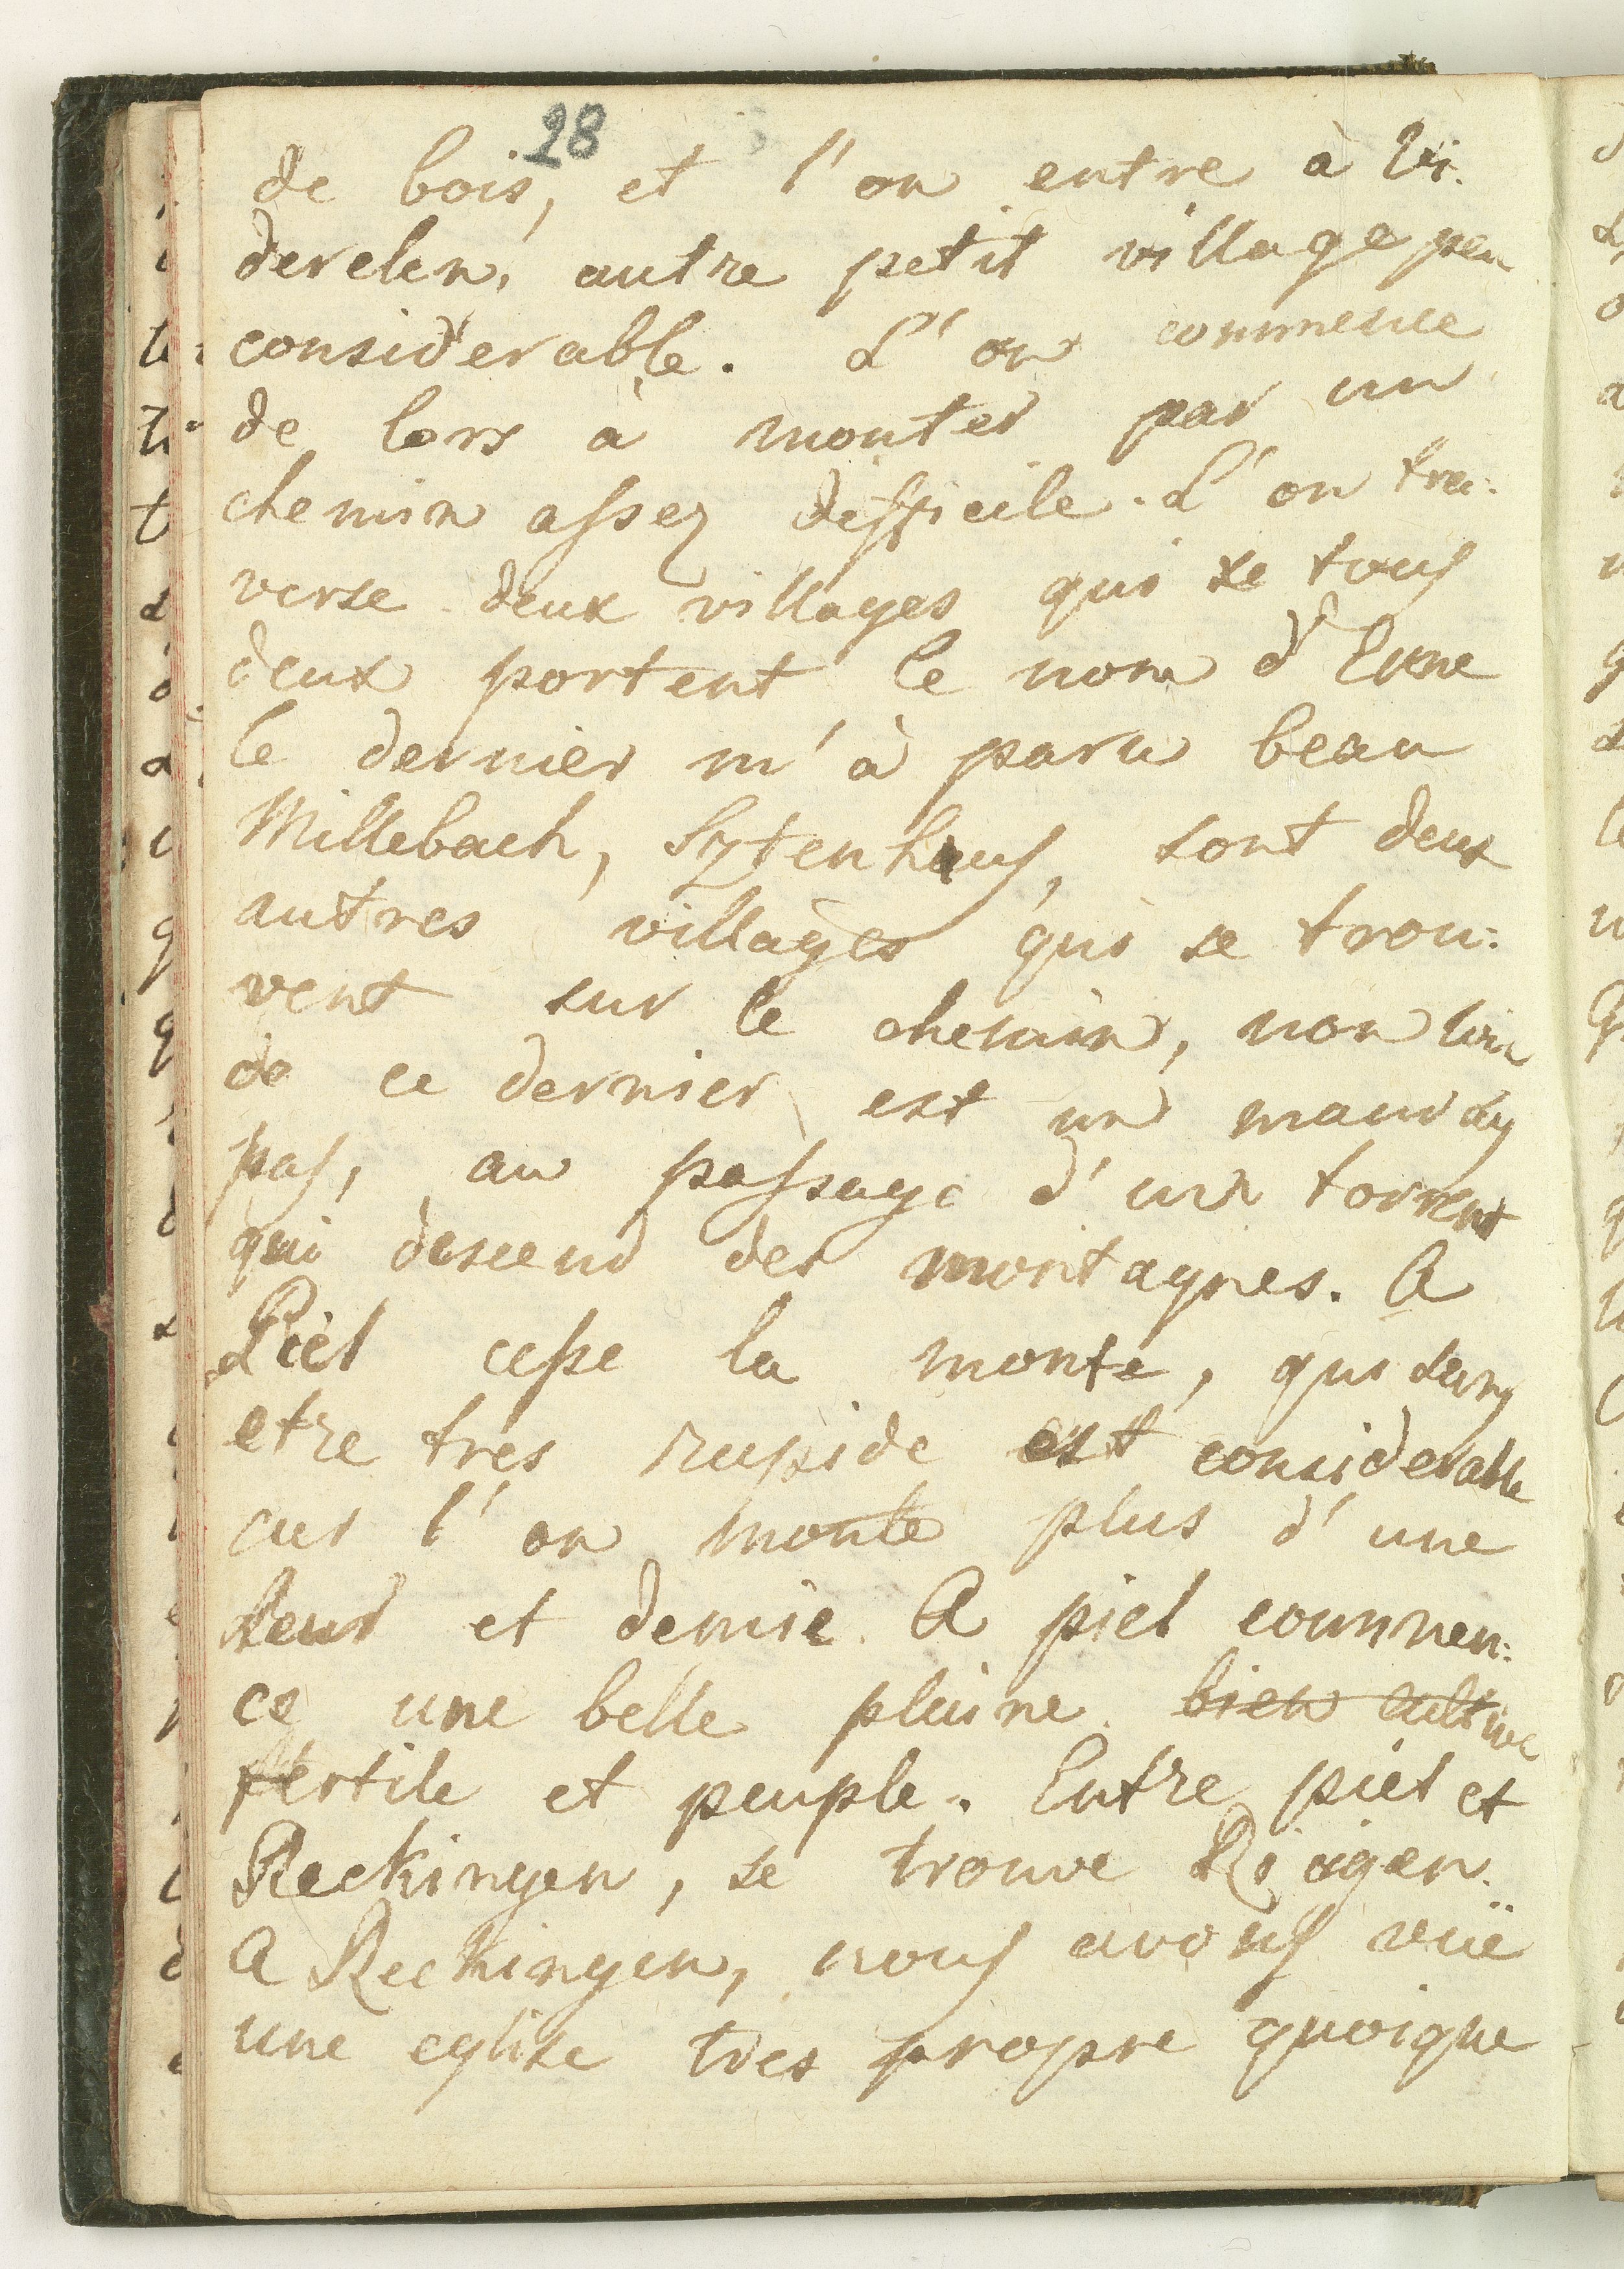 28
de bois, et l'on entre à Vi.
derelen, autre petit village peu
considerable. L'on commence
de lors à monter par un
chemin assez difficile. L'on tra.
verse deux villages qui se tous
deux portent le nom d'Erne
le dernier m'à paru beau
Millebach, Sytenhaus, sont deux
autres villages qui se trou:
vent sur le chemin, non loin
de ce dernier est un mauvay
pas, au passage d'un torrent
qui descend des montagnes. A
Piel cesse la monte, qui sans
etre tres rapide est considerable
car l'on monte plus d'une
heur et demie. A piel commen:
ce une belle plaine. bien cultive
fertile et peuple. Entre piel et
Reckingen, se trouve
A Reckingen, nous avons vuë
une eglise tres propre quoique